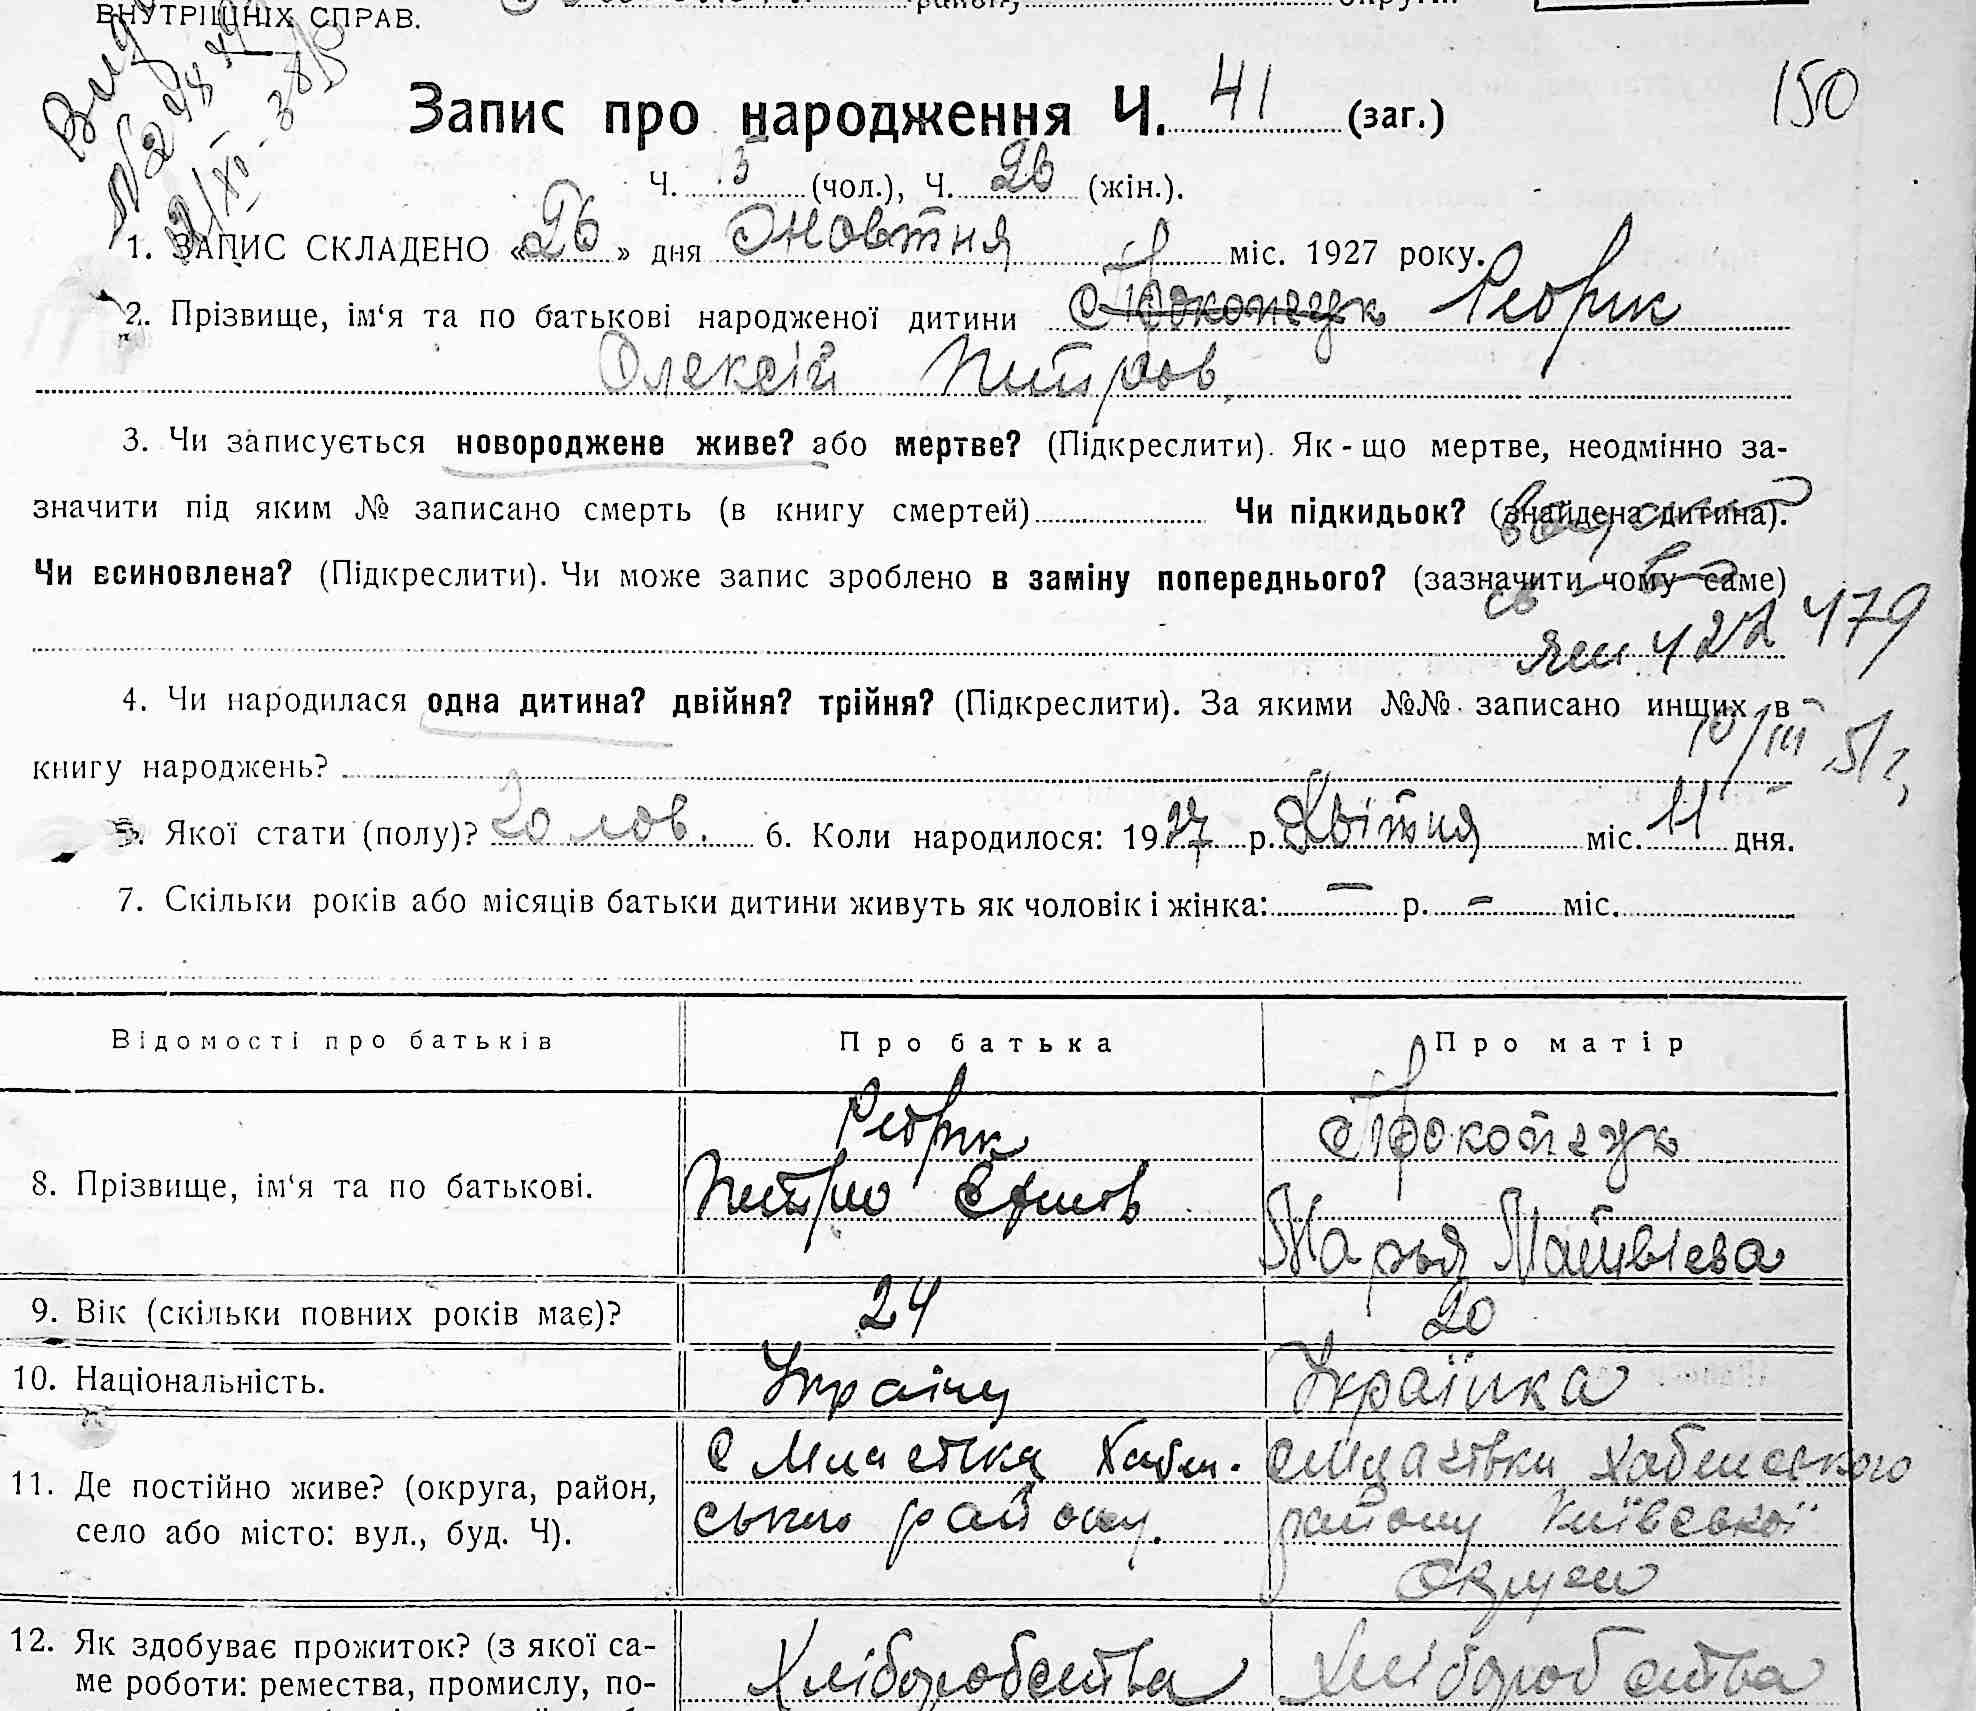 ВНУТРІШНІХ СПРАВ.
150
Запис про народження Ч. 41 (заг.)
Ч. 15 (чол.), Ч. 26 (жін.).
1. ЗАПИС СКЛАДЕНО «26» дня Жовтня міс. 1927 року.
2. Прізвище, ім‘я та по батькові народженої дитини Прокопецк Ребрик
Олексій Питров
3. Чи записується новороджене живе? або мертве? (Підкреслити). Як-що мертве, неодмінно за-
значити під яким № записано смерть (в книгу смертей) Чи підкидьок? (знайдена дитина).
Чи всиновлена? (Підкреслити). Чи може запис зроблено в заміну попереднього? (зазначити чому саме)
422479
4. Чи народилася одна дитина? двійня? трійня? (Підкреслити). За якими №№ записано инших в
10/III 51 г,
книгу народжень?
5. Якої стати (полу)? Чолов. 6. Коли народилося: 1927 р. Квітня міс. 11 дня.
7. Скільки років або місяців батьки дитини живуть як чоловік і жінка: – р. – міс.
Відомості про батьків Про батька Про матір
Ребрик Прокопецк
8. Прізвище, ім‘я та по батькові. Питро
Марья Матвієва
9. Вік (скільки повних років має)? 24 20
10. Національність. Україну Українка
11. Де постійно живе? (округа, район,
село або місто: вул., буд. Ч).
ського району. району Київської
округи
12. Як здобуває прожиток? (з якої са-
ме роботи: ремества, промислу, по- Хліборобства Хліборобства